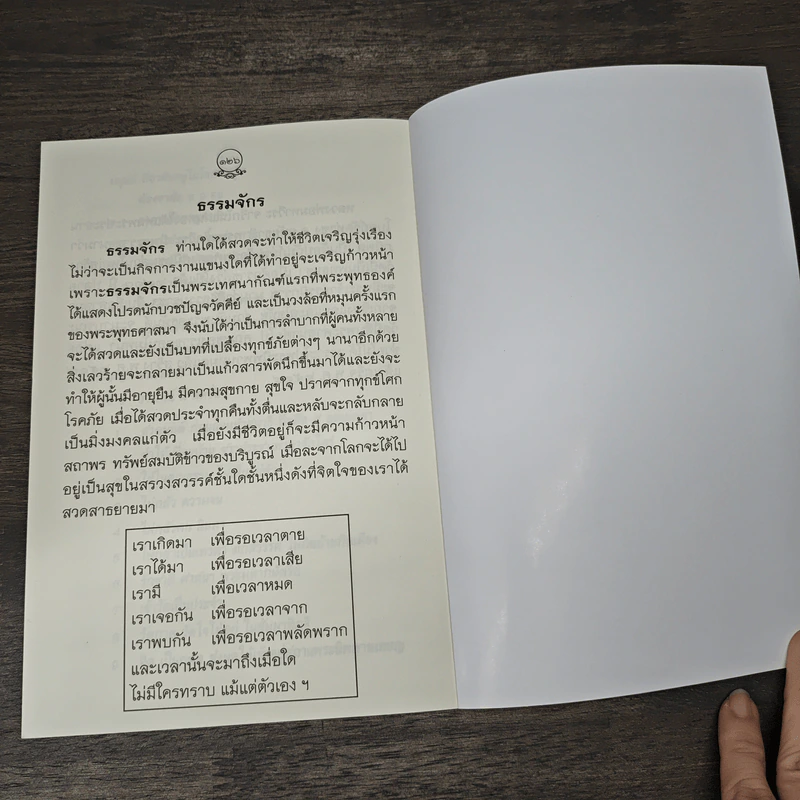 ๑๒๖
ธรรมจักร
ธรรมจักร ท่านใดได้สวดจะทำให้ชีวิตเจริญรุ่งเรือง
ไม่ว่าจะเป็นกิจการงานแขนงใดที่ได้ทำอยู่จะเจริญก้าวหน้า
เพราะธรรมจักรเป็นพระเทศนากัณฑ์แรกที่พระพุทธองค์
ได้แสดงโปรดนักบวชปัญจวัคคีย์ และเป็นวงล้อที่หมุนครั้งแรก
ของพระพุทธศาสนา จึงนับได้ว่าเป็นการลำบากที่ผู้คนทั้งหลาย
จะได้สวดและยังเป็นบทที่เปลื้องทุกข์ภัยต่างๆ นานาอีกด้วย
สิ่งเลวร้ายจะกลายมาเป็นแก้วสารพัดนึกขึ้นมาได้และยังจะ
ทำให้ผู้นั้นมีอายุยืน มีความสุขกาย สุขใจ ปราศจากทุกข์โศก
โรคภัย เมื่อได้สวดประจำทุกคืนทั้งตื่นและหลับจะกลับกลาย
เป็นมิ่งมงคลแก่ตัว เมื่อยังมีชีวิตอยู่ก็จะมีความก้าวหน้า
สถาพร ทรัพย์สมบัติข้าวของบริบูรณ์ เมื่อละจากโลกจะได้ไป
อยู่เป็นสุขในสรวงสวรรค์ชั้นใดชั้นหนึ่งดังที่จิตใจของเราได้
สวดสาธยายมา
เราเกิดมา เพื่อรอเวลาตาย
เราได้มา เพื่อรอเวลาเสีย
เรามี เพื่อเวลาหมด
เราเจอกัน เพื่อรอเวลาจาก
เราพบกัน เพื่อรอเวลาพลัดพราก
และเวลานั้นจะมาถึงเมื่อใด
ไม่มีใครทราบ แม้แต่ตัวเอง ฯ